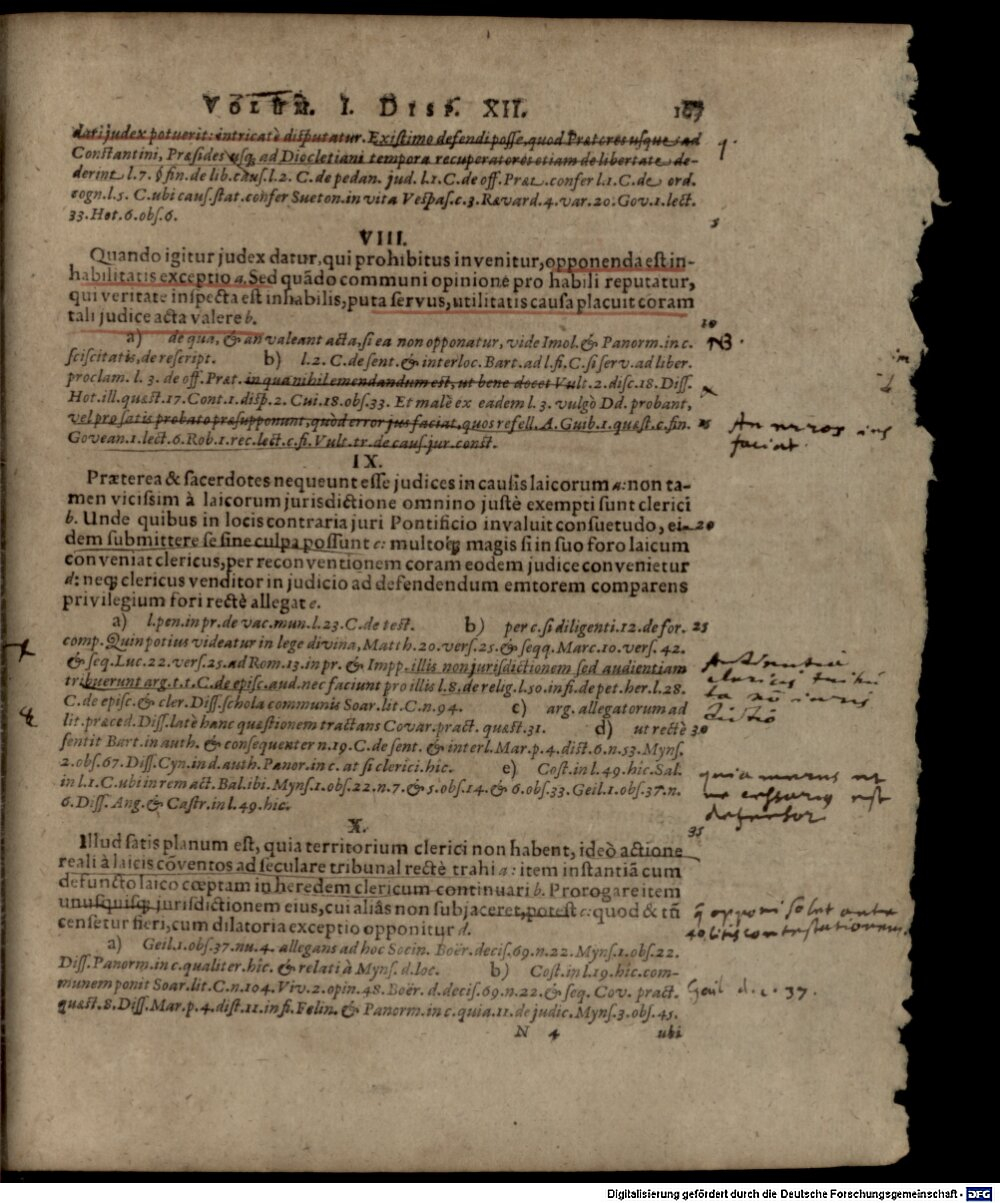 VOLUM. I. DISP. XII. 167
dari judex potuerit: intricatè disputatur. Existimo defendi posse, quod Prætores usque ad
Constantini, Præsides usq; ad Diocletiani tempora recuperatores etiam de libertate de-
derint l. 7. §. fin. de lib. caus. l. 2. C. de pedan. jud. l. 1. C. de off. Præt. confer l. 1. C. de ord.
cogn. l. 5. C. ubi caus. stat. confer Sueton. in vita Vespas. c. 3. Rævard. 4. var. 20. Gov. 1. lect.
33. Hot. 6. obs. 6.
5
VIII.
Quando igitur judex datur, qui prohibitus invenitur, opponenda est in-
habilitatis exceptio a. Sed quãdo communi opinione pro habili reputatur,
qui veritate inspecta est inhabilis, puta servus, utilitatis causa placuit coram
tali judice acta valere b.
10
a) de qua, & an valeant acta, si ea non opponatur, vide Imol. & Panorm. in c.
NB.
sciscitatis, de rescript. b) l. 2. C. de sent. & interloc. Bart. ad l. fi. C. si serv. ad liber.
proclam. l. 3. de off. Præt. in qua nihil emendandum est, ut bene docet Vult. 2. disc. 18. Diss.
Hot. ill. quæst. 17. Cont. 1. disp. 2. Cui. 18. obs. 33. Et malè ex eadem l. 3. vulgò Dd. probant,
vel pro satis probato præsupponunt, quòd error jus faciat, quos refell. A. Guib. 1. quæst. c. fin. 15
An error ius
faciat
Govean. 1. lect. 6. Rob. 1. rec. lect. c. fi. Vult. tr. de caus. jur. const.
IX.
Præterea & sacerdotes nequeunt esse judices in causis laicorum a: non ta-
men vicissim à laicorum jurisdictione omnino justè exempti sunt clerici
b. Unde quibus in locis contraria juri Pontificio invaluit consuetudo, ei- 20
dem submittere se sine culpa possunt c: multoq; magis si in suo foro laicum
conveniat clericus, per reconventionem coram eodem judice convenietur
d: neq; clericus venditor in judicio ad defendendum emtorem comparens
privilegium fori rectè allegat e.
a) l. pen. in pr. de vac. mun. l. 23. C. de test. b) per c. si diligenti. 12. de for. 25
comp. Quin potius videatur in lege divina, Matth. 20. vers. 25. & seqq. Marc. 10. vers. 42.
& seq. Luc. 22. vers. 25. ad Rom. 13. in pr. & Impp. illis non jurisdictionem sed audientiam
tribuerunt arg. t. t. C. de episc. aud. nec faciunt pro illis l. 8. de relig. l. 50. in fi. de pet. her. l. 28.
C. de episc. & cler. Diss. schola communis Soar. lit. C. n. 94. c) arg. allegatorum ad
lit. præced. Diss. latè hanc quæstionem tractans Covar. pract. quæst. 31. d) ut rectè 30
Audientia
clericis tribu
ta nõ iuris
dictio
sentit Bart. in auth. & consequenter n. 19. C. de sent. & interl. Mar. p. 4. dist. 6. n. 53. Myns.
2. obs. 67. Diss. Cyn. in d. auth. Panor. in c. at si clerici. hîc. e) Cost. in l. 49. hîc. Sal.
in l. 1. C. ubi in rem act. Bal. ibi. Myns. 1. obs. 22. n. 7. & 5. obs. 14. & 6. obs. 33. Geil. 1. obs. 37. n.
6. Diss. Ang. & Castr. in l. 49. hîc.
necessarius est
defensor
35
X.
Illud satis planum est, quia territorium clerici non habent, ideò actione
reali à laicis cõventos ad seculare tribunal rectè trahi a: item instantiã cum
defuncto laico cœptam in heredem clericum continuari b. Prorogare item
unusquisq; jurisdictionem eius, cui aliâs non subjaceret, potest c: quod & tñ
censetur fieri, cum dilatoria exceptio opponitur d. 40
q opponi solet ante
litis contestationem.
a) Geil. 1. obs. 37. nu. 4. allegans ad hoc Socin. Boër. decis. 69. n. 22. Myns. 1. obs. 22.
Diss. Panorm. in c. qualiter. hîc. & relati à Myns. d. loc. b) Cost. in l. 19. hîc. com-
munem ponit Soar. lit. C. n. 104. Viv. 2. opin. 48. Boër. d. decis. 69. n. 22. & seq. Cov. pract.
Geil d. c. 37.
quæst. 8. Diss. Mar. p. 4. dist. 11. in fi. Felin. & Panorm. in c. quia. 11. de judic. Myns. 3. obs. 45.
N 4 ubi
Digitalisierung gefördert durch die Deutsche Forschungsgemeinschaft - DFG